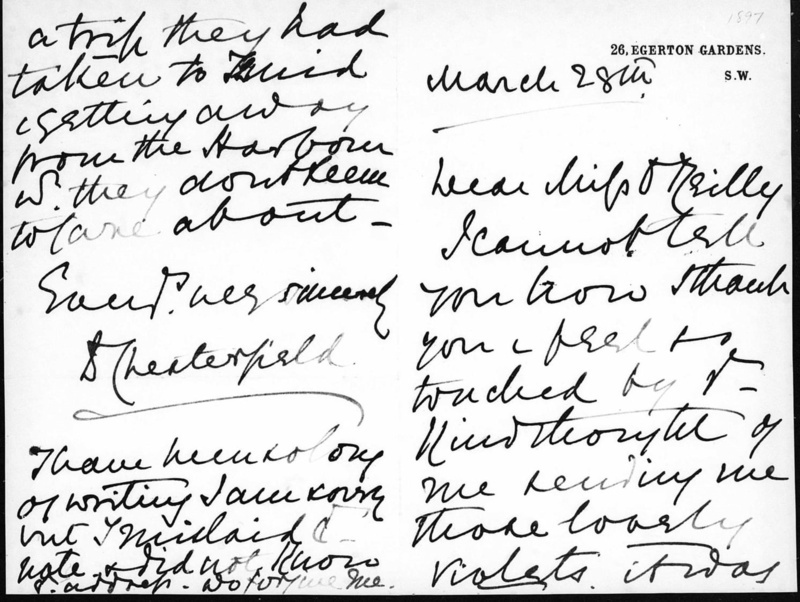 1897
26, EGERTON GARDENS.
S.W.
March 28th
Dear Miss O'Reilly
I cannot tell
you how I thank
you & feel so
touched by yr
Kind thought of
me sending me
those lovely
violets. it was
a trip they had
taken to
& getting away
from the Harbour
wh. they dont seem
to care about -
sincerely
D Chesterfield
I have been so long
of writing I am sorry
but I mislaid yr
note & did not know
yr. address. Do forgive me.